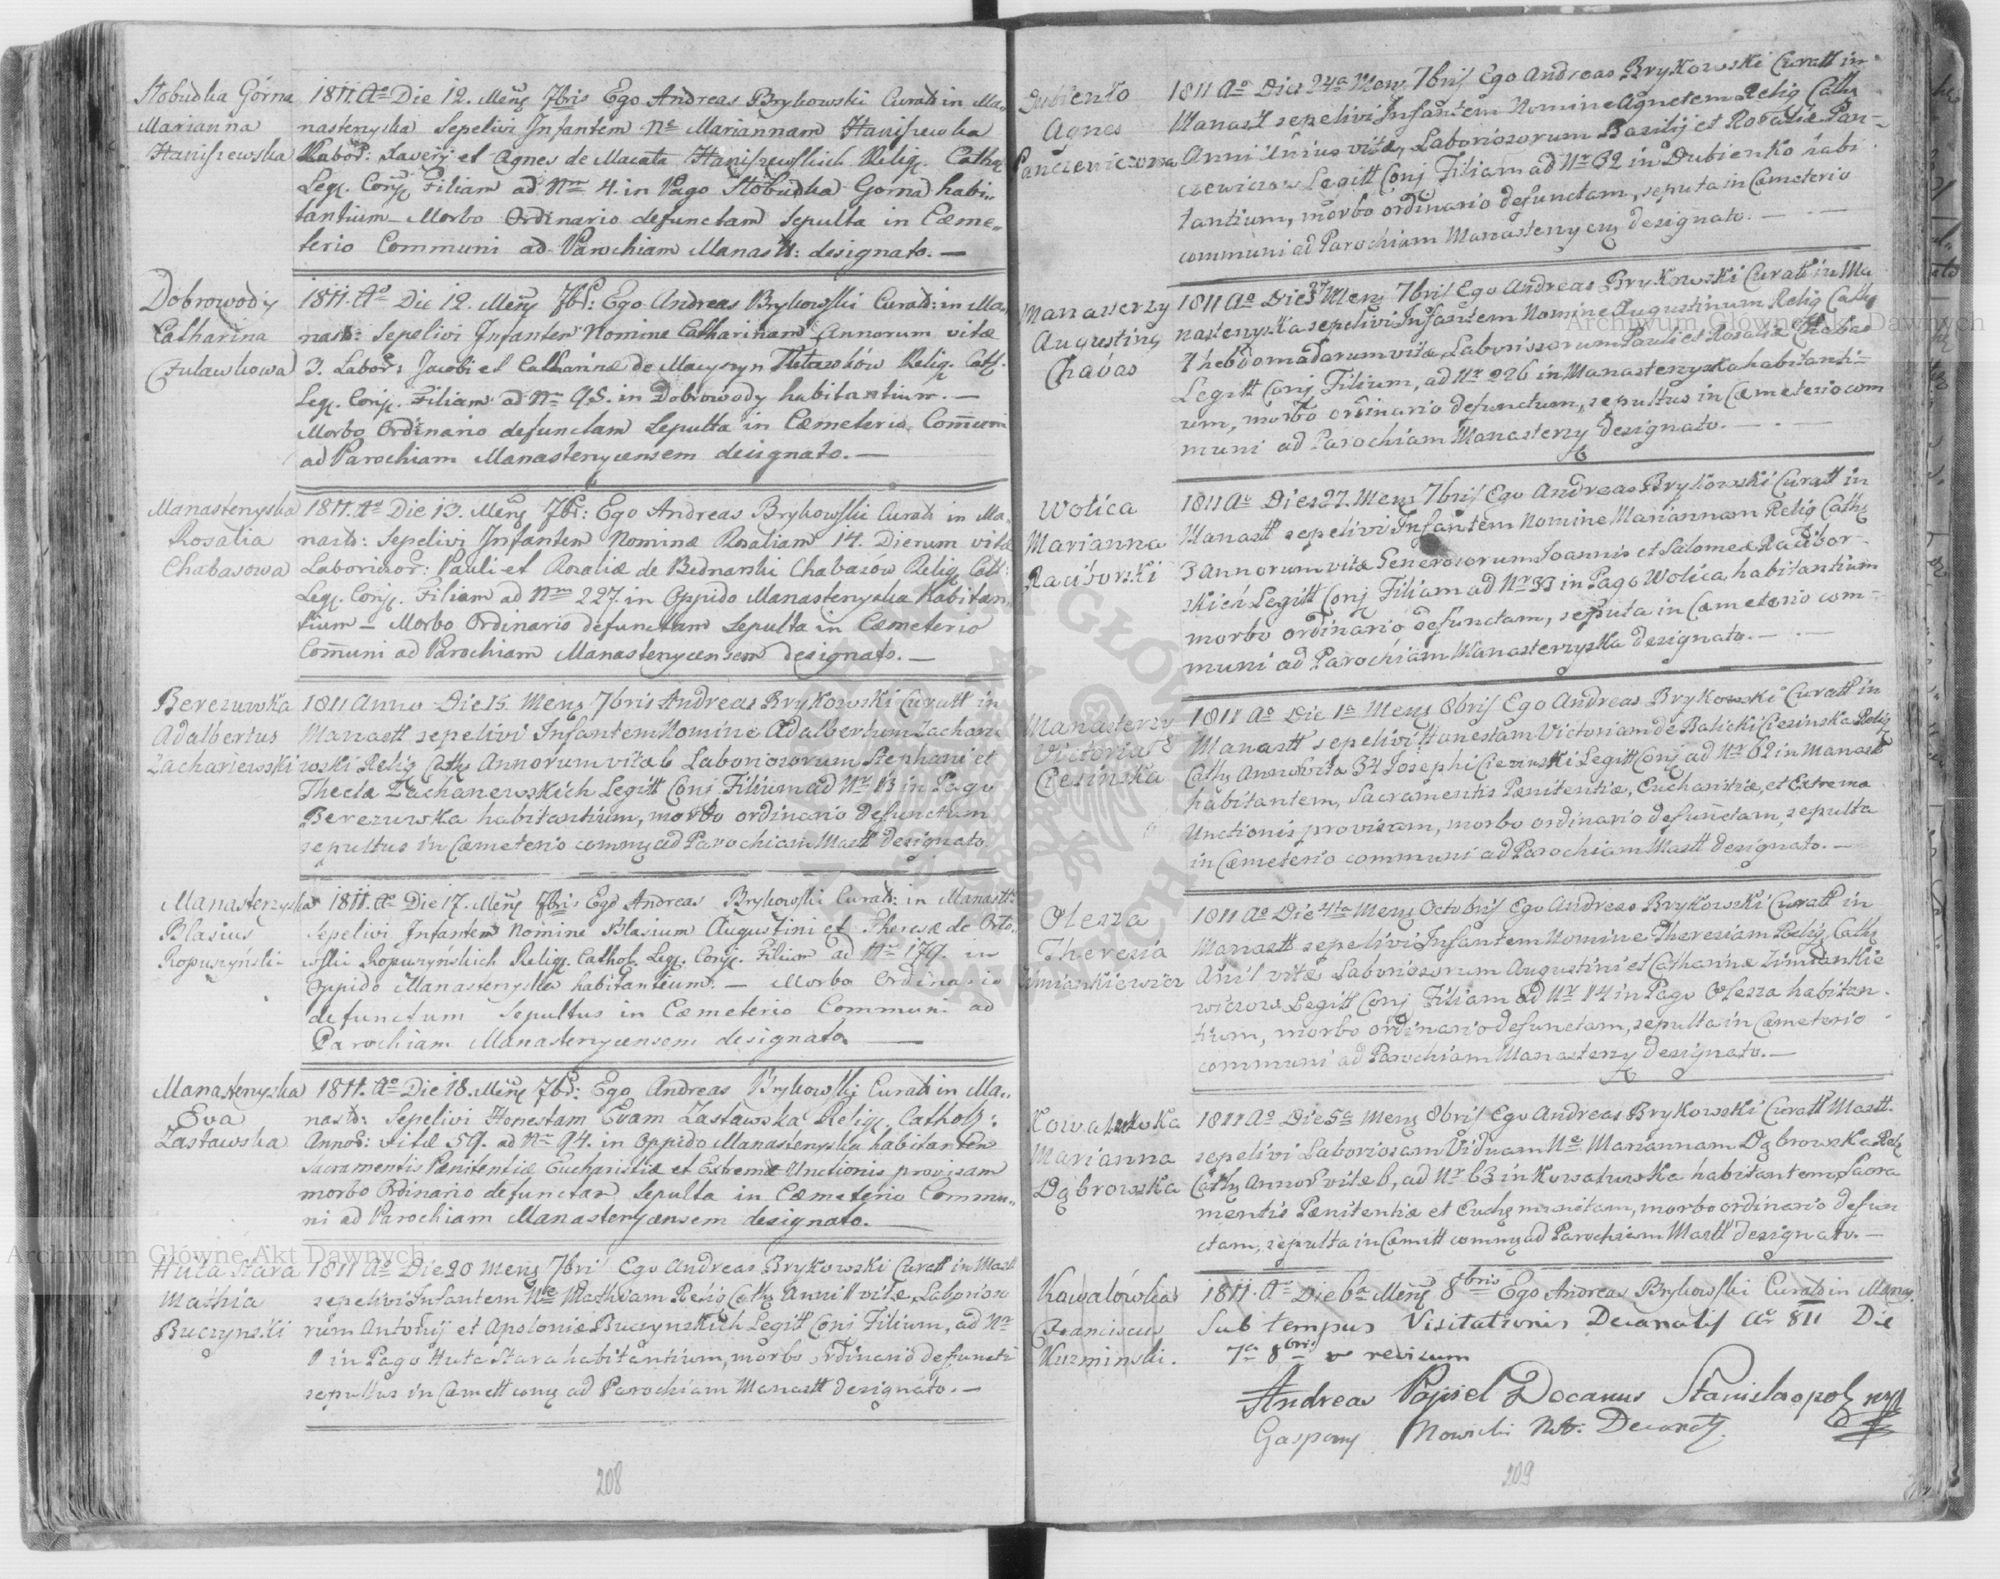 Słobudka Górna
Marianna
Haniszewska
1811. Aō Die 12. Mens 7bris Ego Andreas Brykowski Curat: in Ma-
nasterzyska Sepelivi Infantem Ne Mariannam Haniszewska
Labor: Xaverij et Agnes de Macata Haniszewskich Relig. Cathq
Leg. Conj. Filiam ad Nrm 4. in Pago Słobudka Gorna habi-
tantium – Morbo Ordinario defunctam Sepulta in Cæme-
terio Communi ad Parochiam Manast: designato. —
Dobrowody
Catharina
1811. Aō Die 12. Mens 7br: Ego Andreas Brykowski Curat: in Ma-
nast: Sepelivi Infantem Nomine Catharinam Annorum vitæ
3. Labor: Jacobi et Catharinæ de Relig. Cath.
Leg. Conj. Filiam ad Nrm 95. in Dobrowody habitantium. —
Morbo Ordinario defunctam Sepulta in Cæmeterio Communi
ad Parochiam Manasterycensem designato. —
Manasterzyska
Rosalia
Chabasowa
1811. Aō Die 13. Mens 7br: Ego Andreas Brykowski Curat: in Ma-
nast: Sepelivi Infantem Nomine Rosaliam 14. Dierum vitæ
Laborisor: Pauli et Rosaliæ de Bednarski Chabasów Relig. Cath:
Leg. Conj. Filiam ad Nrm 227. in Oppido Manasterzyska habitan-
tium – Morbo Ordinario defunctam Sepulta in Cæmeterio
Comuni ad Parochiam Manasterycensem designato. —
Berezuwka
Adalbertus
Zachariewski
1811 Anno Die 15. Mens 7bris Andreas Brykowski Curatt in
Manastt sepelivi Infantem Nomine Adalbertum Zachari-
wski Relig Cath Annorum vitæ 6 Laboriosorum Stephani et
Theclæ Zachariewskich Legitt Conj Filium ad Nr 13 in Pago
Berezuwka habitantium, morbo ordinario defunctum
sepultus in Cæmeterio commu ad Parochiam Mastt designato
Manasterzyska
Blasius
Ropuszyński
1811. Aō Die 17. Mens 7bris Ego Andreas Brykowski Curat: in Manastt:
Sepelivi Infantem Nomine Blasium Augustini et Theresæ de Orło-
wski Ropuszyńskich Relig. Cathol. Leg. Conj. Filium ad Nrm 179. in
Oppido Manasterzyska habitantium. — Morbo Ordinario
defunctum Sepultus in Cæmeterio Communi ad
Parochiam Manasterycensem designato. —
Manasterzyska
Eva
Zasławska
1811. Aō Die 18. Mens 7br: Ego Andreas Brykowski Curat: in Ma-
nast: Sepelivi Honestam Evam Zasławska Relig. Cathol:
Annor: Vitæ 59. ad Nrm 94. in Oppido Manasterzyska habitantem
Sacramentis Pœnitentiæ Eucharistiæ et Extremæ Unctionis provisam
morbo Ordinario defunctam Sepulta in Cæmeterio Commu-
ni ad Parochiam Manasterycensem designato. —
Huta Stara
Mathia
Buczynski
1811 Aō Die 20 Mens 7bri Ego Andreas Brykowski Curatt in Mastt
sepelivi Infantem Ne Mathiam Relig Cath Anni 1 vitæ, Laborioso
rum Antonij et Apoloniæ Buczynskich Legitt Conj Filium, ad Nr
1 in Pago Huta Stara habitantium, morbo ordinario defuncti
sepultus in Cæmett comu ad Parochiam Manastt designato. —
208
Dubienko
Agnes
Panczewiczowna
1811 Aō Dies 24a Mens 7bris Ego Andreas Brykowski Curatt in
Manast sepelivi Infantem Nomine Agnetem Relig Cath
Anni Unius vitæ, Laboriosorum Basilij et Rosaliæ Pan-
czewiczow Legitt Conj Filiam ad Nr 32 in Dubienko habi
tantium, morbo ordinario defunctam, sepulta in Cæmeterio
communi ad Parochiam Manasteryceng designato. —
Manasterzy
Augustinus
Chabas
1811 Aō Dies 27 Mens 7bris Ego Andreas Brykowski Curatt in Ma
nasterzyska sepelivi Infantem Nomine Augustinum Relig Cath
7 hebdomadarum vitæ, Laboriosorum Pauli et Rosaliæ Chabas
Legitt Conj Filium, ad Nr 226 in Manasterzyska habitanti-
um, morbo ordinario defunctum, sepultus in Cæmeterio com
muni ad Parochiam Manasterzy designato. —
Wolica
Marianna
Raciborski
1811 Aō Dies 27. Mens 7bris Ego Andreas Brykowski Curatt in
Manastt sepelivi Infantem Nomine Mariannam Relig Cath
3 Annorum vitæ Generosorum Joannis et Salomeæ Racibor-
skich Legitt Conj Filiam ad Nr 33 in Pago Wolica habitantium
morbo ordinario defunctam, sepulta in Cæmeterio com-
muni ad Parochiam Manasterzyska designato. —
Manasterzy
Victoria
Ciesinska
1811 Aō Die 1a Mens 8bris Ego Andreas Brykowski Curatt in
Manastt sepelivi Honestam Victoriam de Balicki Ciesinska Relig
Cath Annor vita 34 Josephi Ciesinski Legitt Conj ad Nr 62 in Manastt
habitantem, Sacramentis Pœnitentiæ, Eucharistiæ, et Extrema
Unctionis provisam, morbo ordinario defunctam, sepulta
in Cæmeterio communi ad Parochiam Mastt designato. —
Olesza
Theresia
Zimiankiewicz
1811 Aō Die 4ta Mens Octobris Ego Andreas Brykowski Curatt in
Manastt sepelivi Infantem Nomine Theresiam Relig Cath
Anni 1 vitæ Laboriosorum Augustini et Catharinæ Zimiankie
wiczow Legitt Conj Filiam ad Nr 14 in Pago Olesza habitan-
tium, morbo ordinario defunctam, sepulta in Cæmeterio
communi ad Parochiam Manasterzy designato. —
Kowaluwka
Marianna
Dąbrowska
1811 Aō Die 5a Mens 8bris Ego Andreas Brykowski Curatt Mastt.
sepelivi Laboriosam Viduam Ne Mariannam Dąbrowska Relg
Cath Annor vitæ 6, ad Nr 63 in Kowaluwka habitantem, Sacra
mentis Pœnitentiæ et Euch munitam, morbo ordinario defun
ctam, sepulta in Cæmitt commu ad Parochiam Mastt designato. —
Kowalówka
Franciscus
Kuzminski.
1811. Aō Die 6a Mens 8bris Ego Andreas Brykowski Curat in Manas.
Sub tempus Visitationis Decanalis Aō 811 Die
7a 8bris revisum
Andreas Papiel Decanus Stanislaopol
Nowicki Not: Decanat.
209
Archiwum Główne Akt Dawnych
Archiwum Główne Akt Dawnych